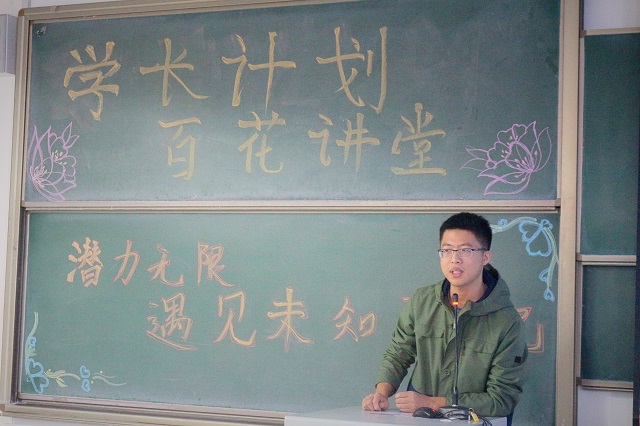 学长计划
百花讲堂
潜力无限
遇见未知